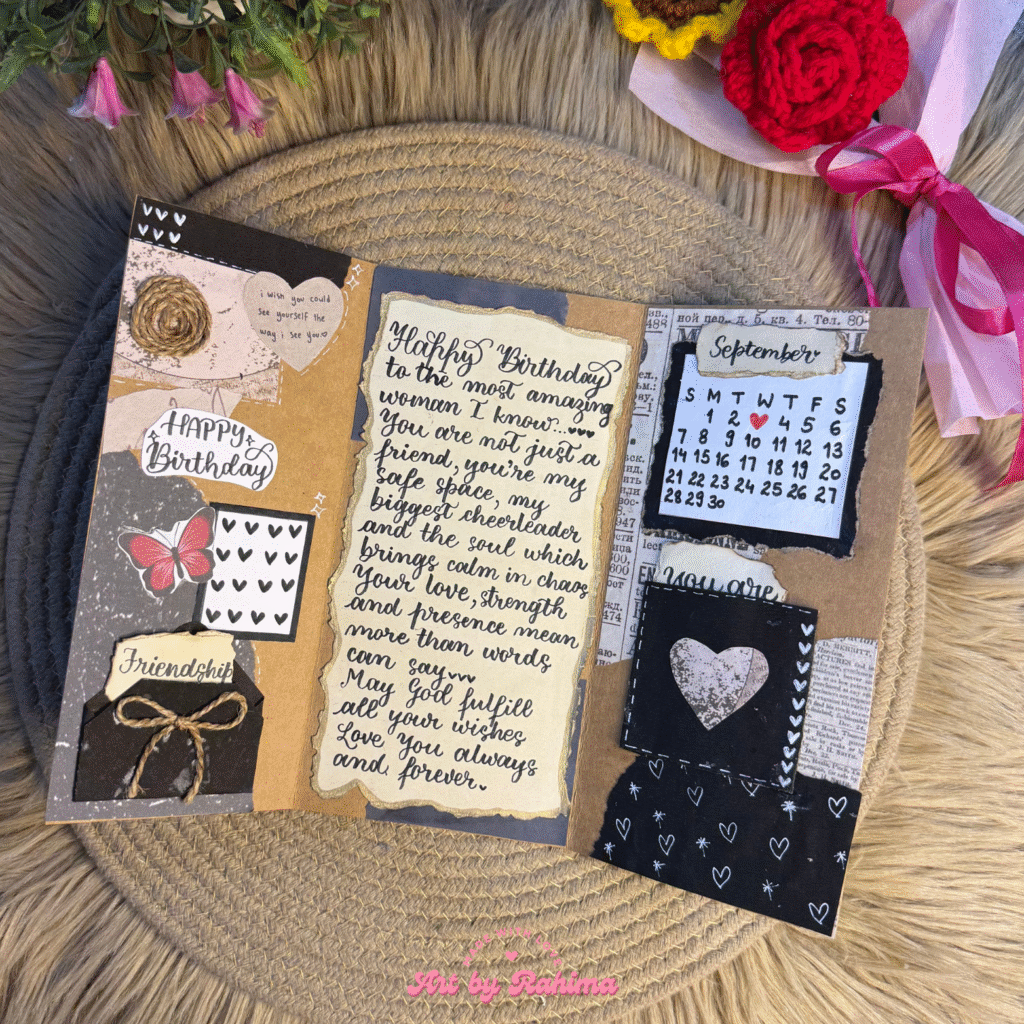 i wish you could
see yourself the
way i see you♡
HAPPY
Birthday
Friendship
Happy Birthday
to the most amazing
woman I know...♥♥♥
You are not just a
friend, you're my
safe space, my
biggest cheerleader
and the soul which
brings calm in chaos
Your love, strength
and presence mean
more than words
can say♥♥♥
May God fulfill
all your wishes
Love you always
and forever♥
488
ной пер., д. 5, кв. 4. Тел. 80-
September♥
S M T W T F S
1 2 ♥ 4 5 6
7 8 9 10 11 12 13
14 15 16 17 18 19 20
21 22 23 24 25 26 27
28 29 30
you are
Art by Rahima